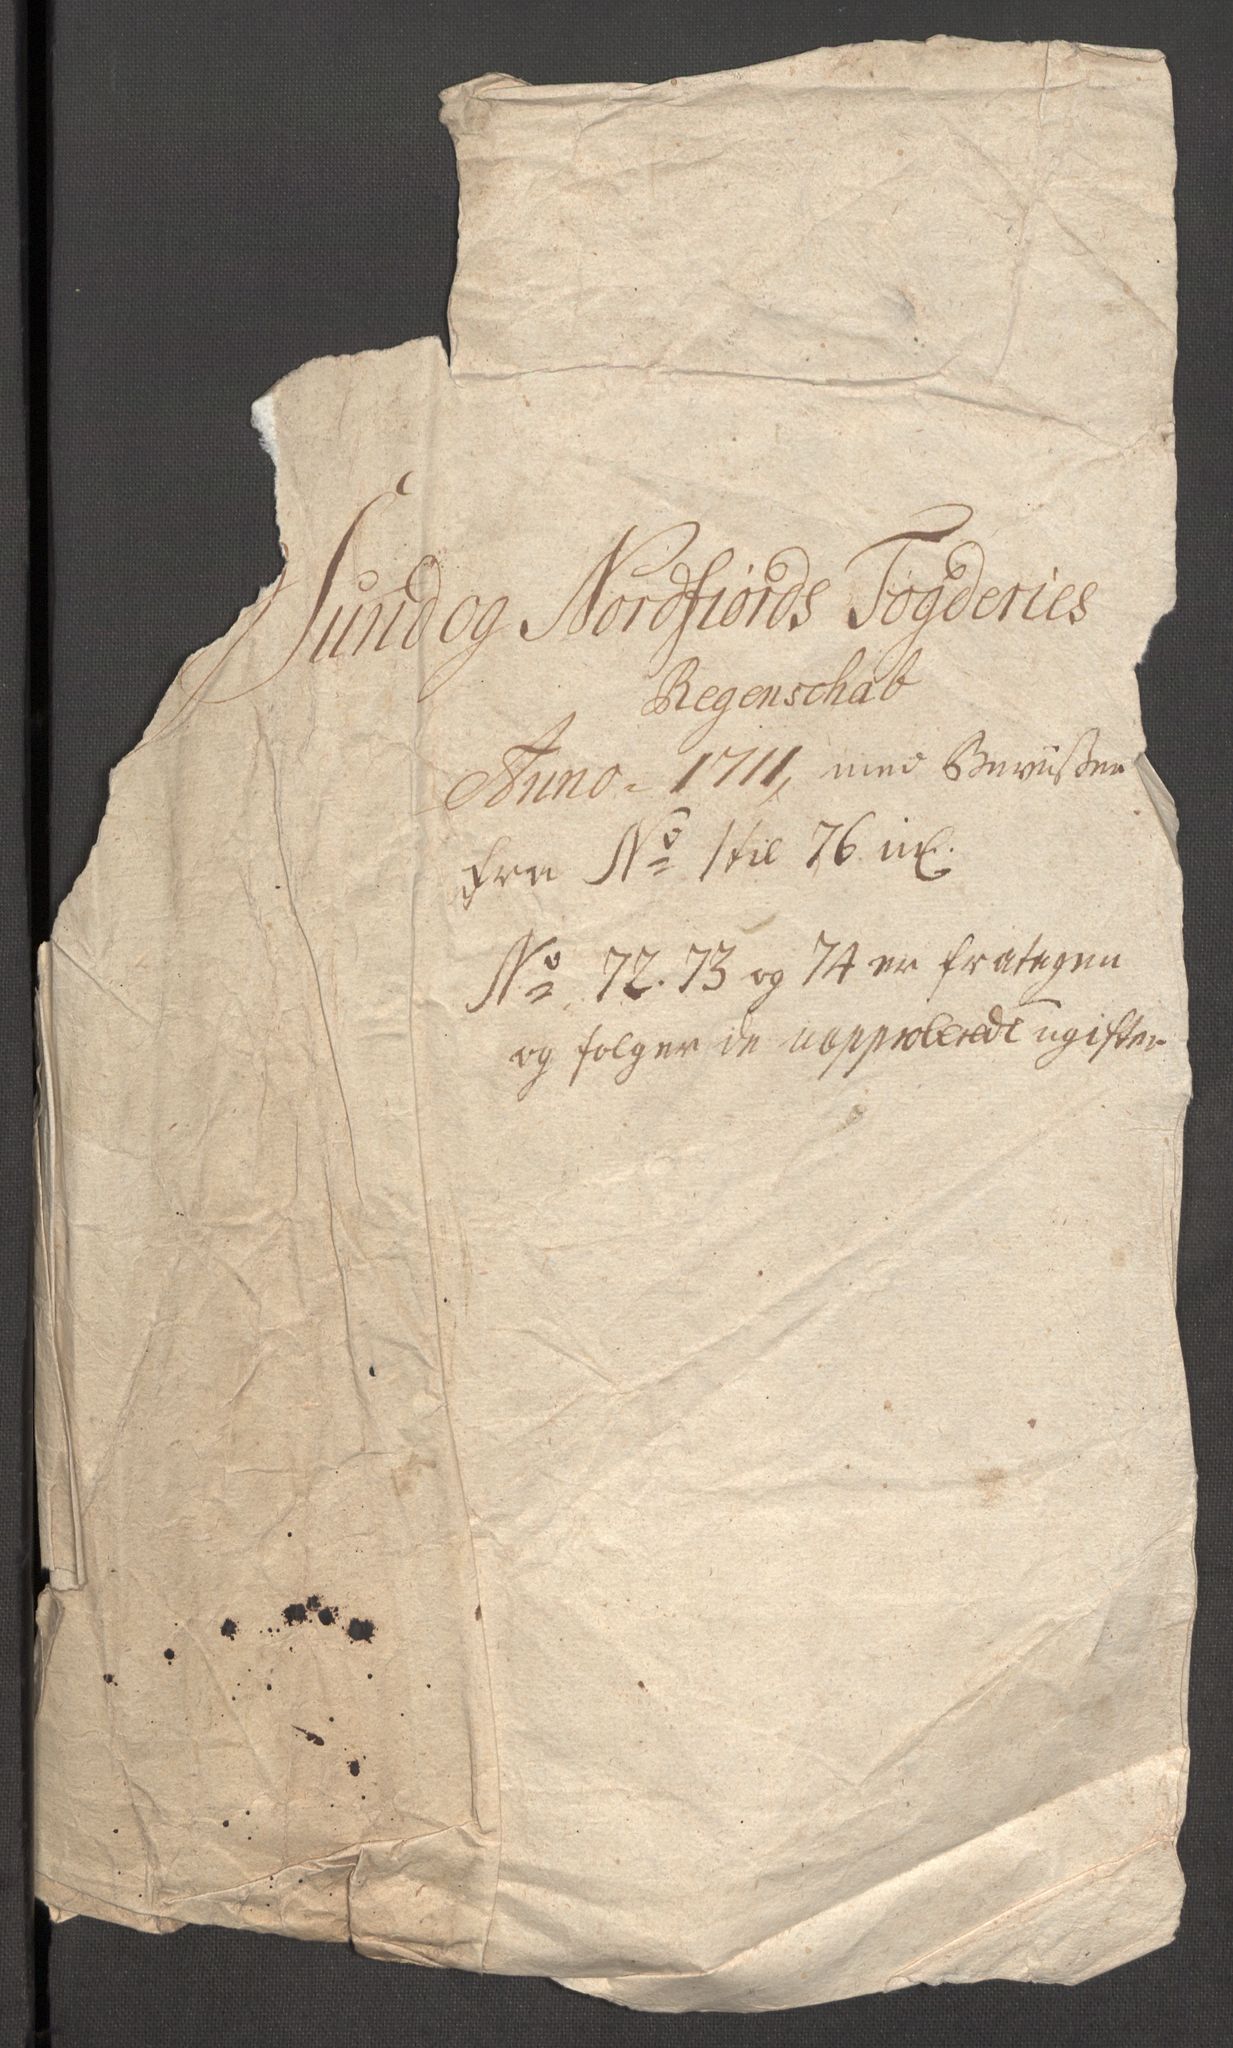 Sund og Nordfiords Fogderies
Regenschab
Anno 1711, med Beviißer
fra No 1 til 76 in
No 72. 73 og 74 er fratagen
og folger de uapproberede ugifter